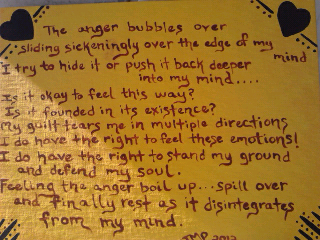 The anger bubbles over
sliding sickeningly over the edge of my
mind
I try to hide it or push it back deeper
into my mind....
Is it okay to feel this way?
Is it founded in its existence?
My guilt tears me in multiple directions
I do have the right to feel these emotions!
I do have the right to stand my ground
and defend my soul.
Feeling the anger boil up...spill over
and finally rest as it disintegrates
from my mind.